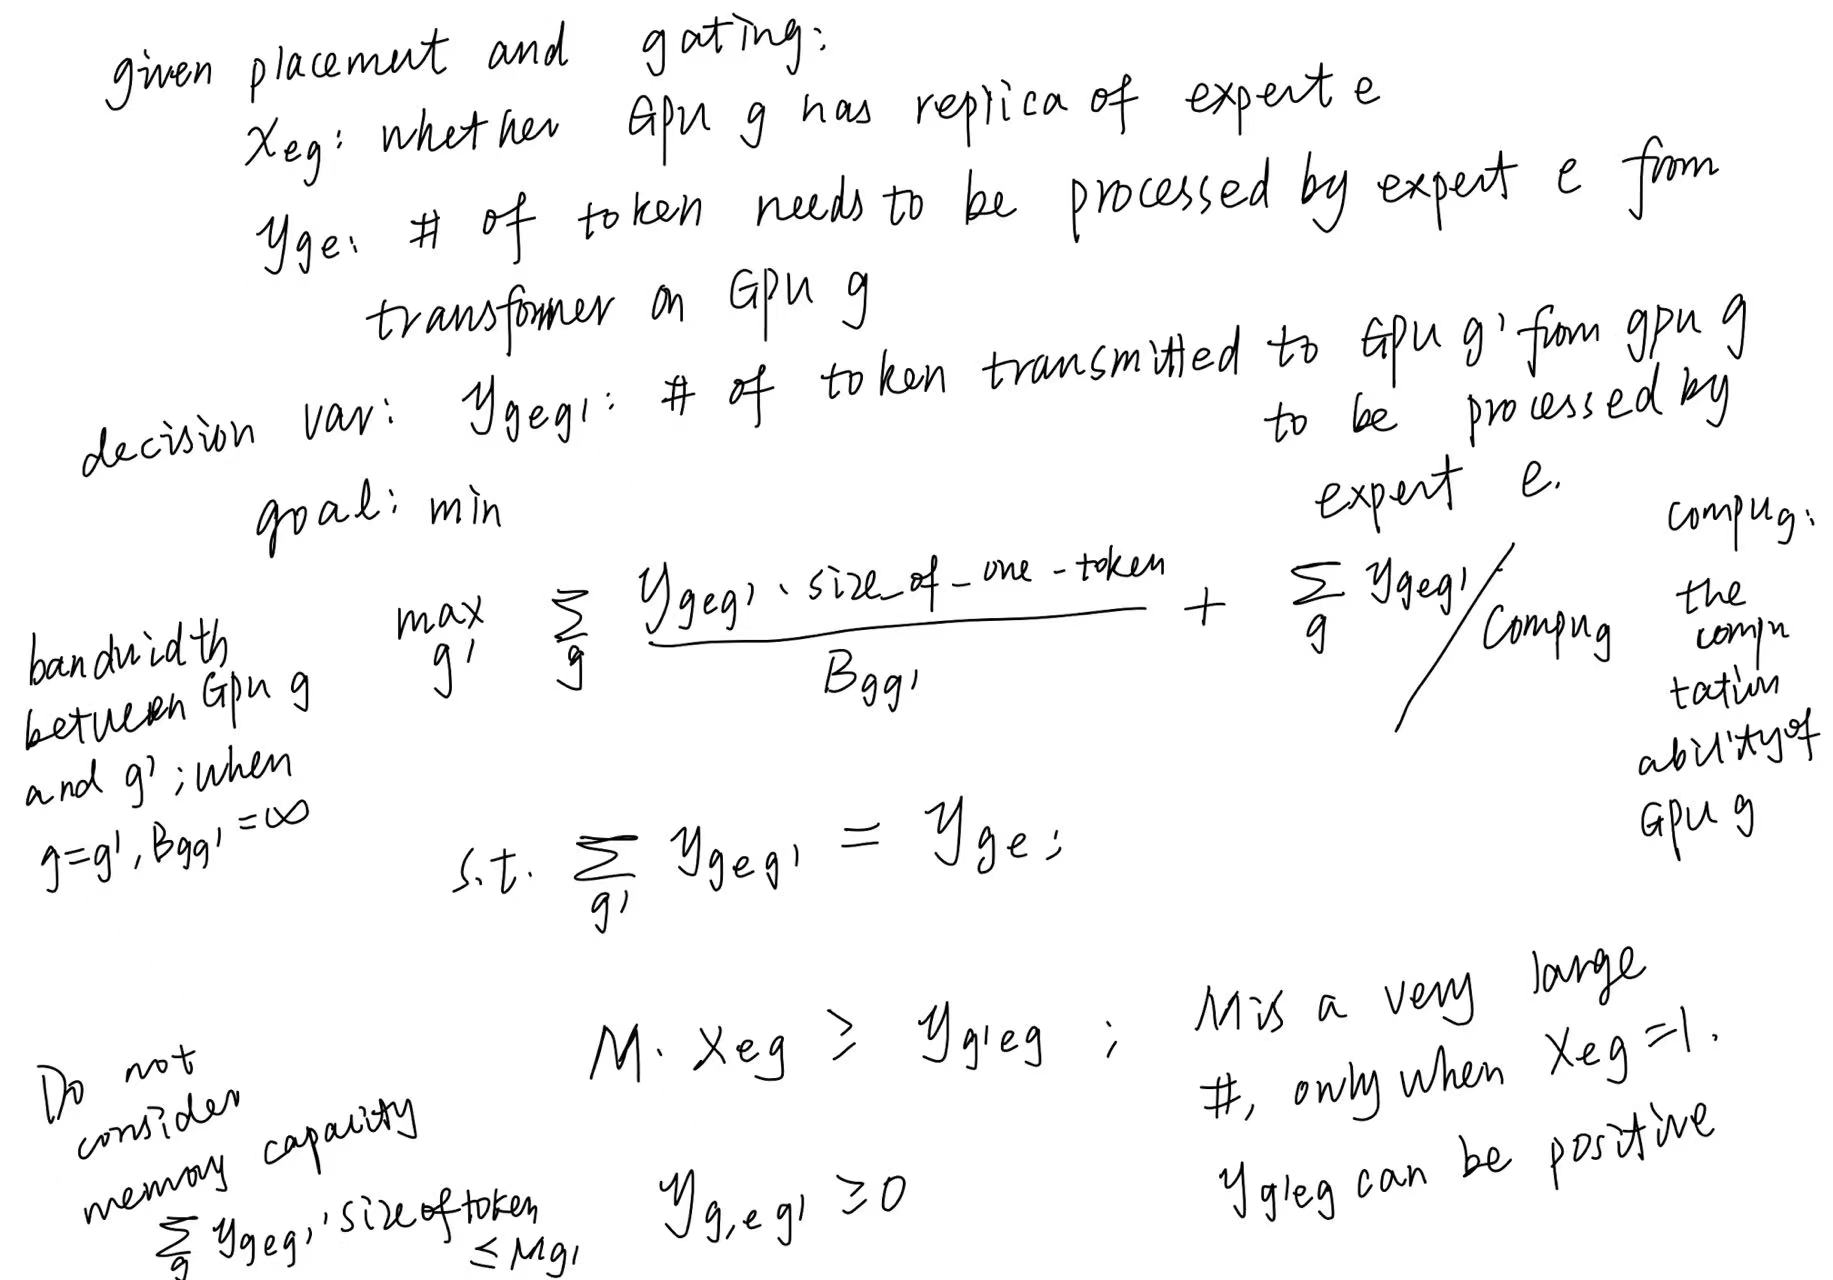 given placement and gating:
X_eg: whether GPU g has replica of expert e
y_ge: # of token needs to be processed by expert e from
transformer on GPU g
decision var: y_geg': # of token transmitted to GPU g' from gpu g
to be processed by
expert e.
goal: min
max_g' Σ_g (y_geg' · size_of_one-token) / B_gg' + Σ_g y_geg' / Compu_g
compu_g:
the
compu
tation
ability of
GPU g
bandwidth
between GPU g
and g'; when
g=g', B_gg' = ∞
s.t. Σ_g' y_geg' = y_ge;
M. X_eg ≥ y_g'eg ;
M is a very large
#, only when X_eg =1.
y_g'eg can be positive
y_g,eg' ≥0
Do not
consider
memory capacity
Σ_g y_geg' · size of token
≤ M_g'